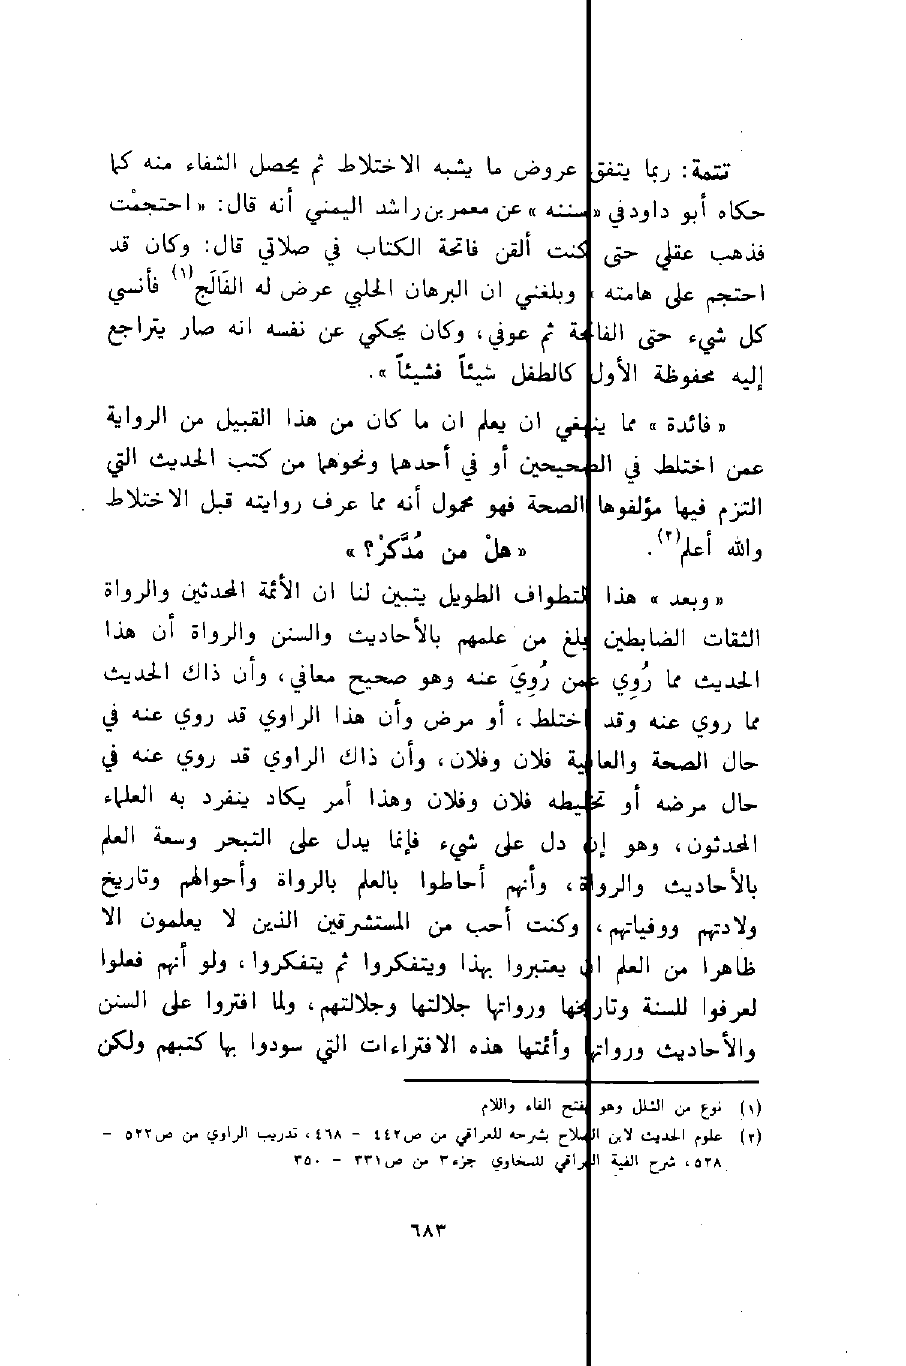 تتمة: ربما يتفق عروض ما يشبه الاختلاط ثم يحصل الشفاء منه كما
حكاه أبو داود في «سننه» عن معمر بن راشد اليمني أنه قال: «احتجمْت
فذهب عقلي حتى كنت ألقن فاتحة الكتاب في صلاتي قال: وكان قد
احتجم على هامته، وبلغني ان البرهان الحلبي عرض له الفَالَج(١) فأنسي
كل شيء حتى الفاتحة ثم عوفي، وكان يحكي عن نفسه انه صار يتراجع
إليه محفوظة الأول كالطفل شيئاً فشيئاً».
«فائدة» مما ينبغي ان يعلم ان ما كان من هذا القبيل من الرواية
عمن اختلط في الصحيحين أو في أحدهما ونحوهما من كتب الحديث التي
التزم فيها مؤلفوها الصحة فهو محمول أنه مما عرف روايته قبل الاختلاط
والله أعلم(٢). «هلْ من مُدَّكرْ؟»
«وبعد» هذا التطواف الطويل يتبين لنا ان الأئمة المحدثين والرواة
الثقات الضابطين بلغ من علمهم بالأحاديث والسنن والرواة أن هذا
الحديث مما رُوِي عمن رُوِيَ عنه وهو صحيح معافي، وأن ذاك الحديث
مما روي عنه وقد اختلط، أو مرض وأن هذا الراوي قد روي عنه في
حال الصحة والعافية فلان وفلان، وأن ذاك الراوي قد روي عنه في
حال مرضه أو تخليطه فلان وفلان وهذا أمر يكاد ينفرد به العلماء
المحدثون، وهو إن دل على شيء فإنما يدل على التبحر وسعة العلم
بالأحاديث والرواة، وأنهم أحاطوا بالعلم بالرواة وأحوالهم وتاريخ
ولادتهم ووفياتهم، وكنت أحب من المستشرقين الذين لا يعلمون الا
ظاهرا من العلم ان يعتبروا بهذا ويتفكروا ثم يتفكروا، ولو أنهم فعلوا
لعرفوا للسنة وتاريخها ورواتها جلالتها وجلالتهم، ولما افتروا على السنن
والأحاديث ورواتها وأئمتها هذه الافتراءات التي سودوا بها كتبهم ولكن
(١) نوع من الشلل وهو بفتح الفاء واللام
(٢) علوم الحديث لابن الصلاح بشرحه للعراقي من ص٤٤٢ - ٤٦٨، تدريب الراوي من ص٥٢٢ -
٥٢٨، شرح الفية العراقي للسخاوي جزء٣ من ص٣٣١ - ٣٥٠
٦٨٣